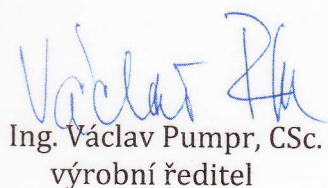 Václav
Ing. Václav Pumpr, CSc.
výrobní ředitel